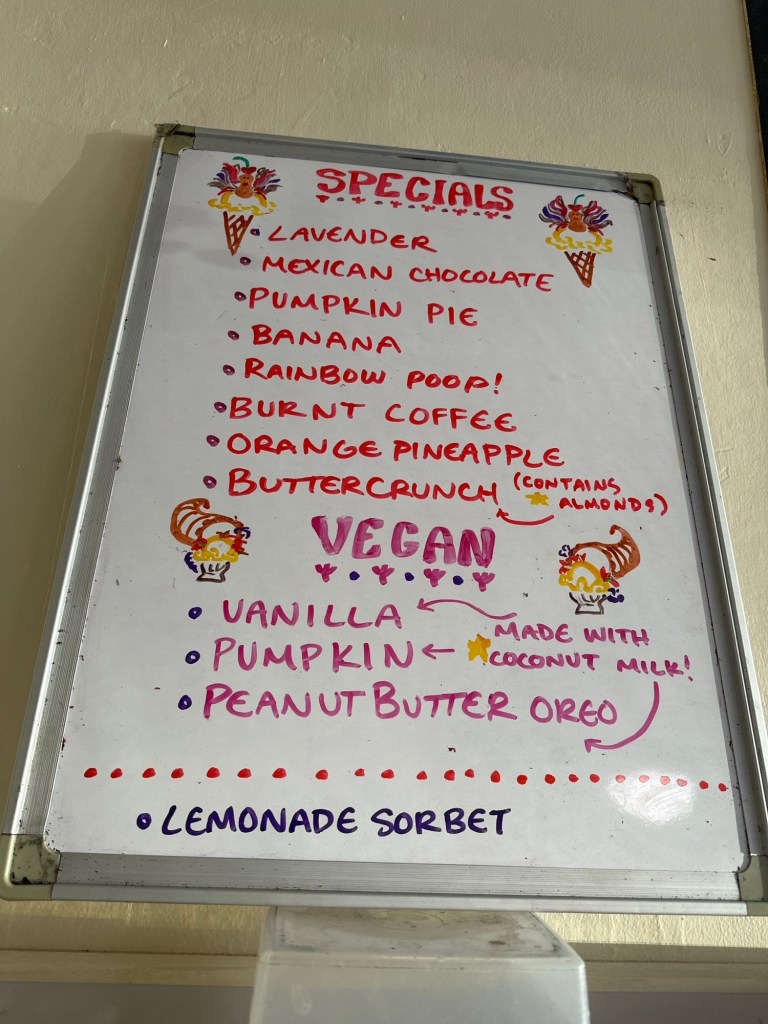 SPECIALS
• LAVENDER
• MEXICAN CHOCOLATE
• PUMPKIN PIE
• BANANA
• RAINBOW POOP!
• BURNT COFFEE
• ORANGE PINEAPPLE
• BUTTERCRUNCH (CONTAINS
ALMONDS)
VEGAN
• VANILLA
MADE WITH
• PUMPKIN
COCONUT MILK!
• PEANUT BUTTER OREO
• LEMONADE SORBET